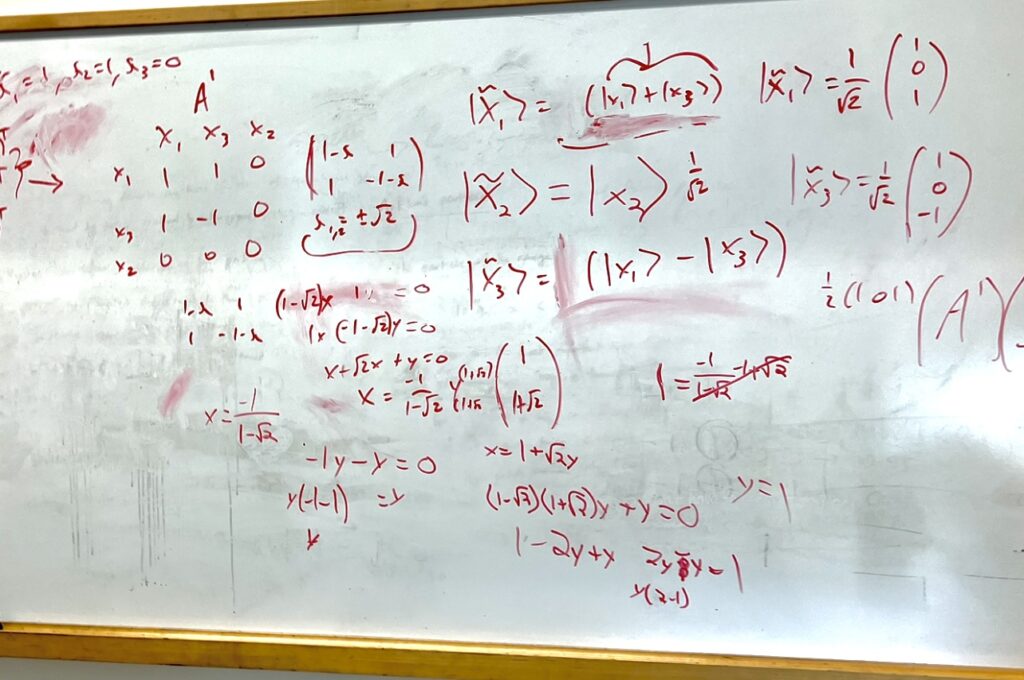 λ₁=1, λ₂=1, λ₃=0
A'
x₁ x₃ x₂
x₁ 1 1 0
x₃ 1 -1 0
x₂ 0 0 0
→
(1-λ 1
1 -1-λ)
λ₁,₂= ±√2
1-λ 1
1 -1-λ
(1-√2)x 1 = 0
1x (-1-√2)y=0
x+√2x + y=0
x = -1/(1-√2) y
(1+√2)
(1+√2)
(1
1+√2)
x = -1/(1-√2)
-1y-y=0
y(-1-1) =y
y
x=1+√2y
(1-√2)(1+√2)y + y=0
1-2y+y 2y y=1
y(2-1)
y=1
|x̃₁⟩ = (|x₁⟩+|x₃⟩)
|x̃₂⟩ = |x₂⟩ 1/√2
|x̃₃⟩ = (|x₁⟩ - |x₃⟩)
|x̃₁⟩ = 1/√2 (1
0
1)
|x̃₃⟩ = 1/√2 (1
0
-1)
1/2 (1 0 1) (A') (
1 = -1/(1-√2) -1+√2